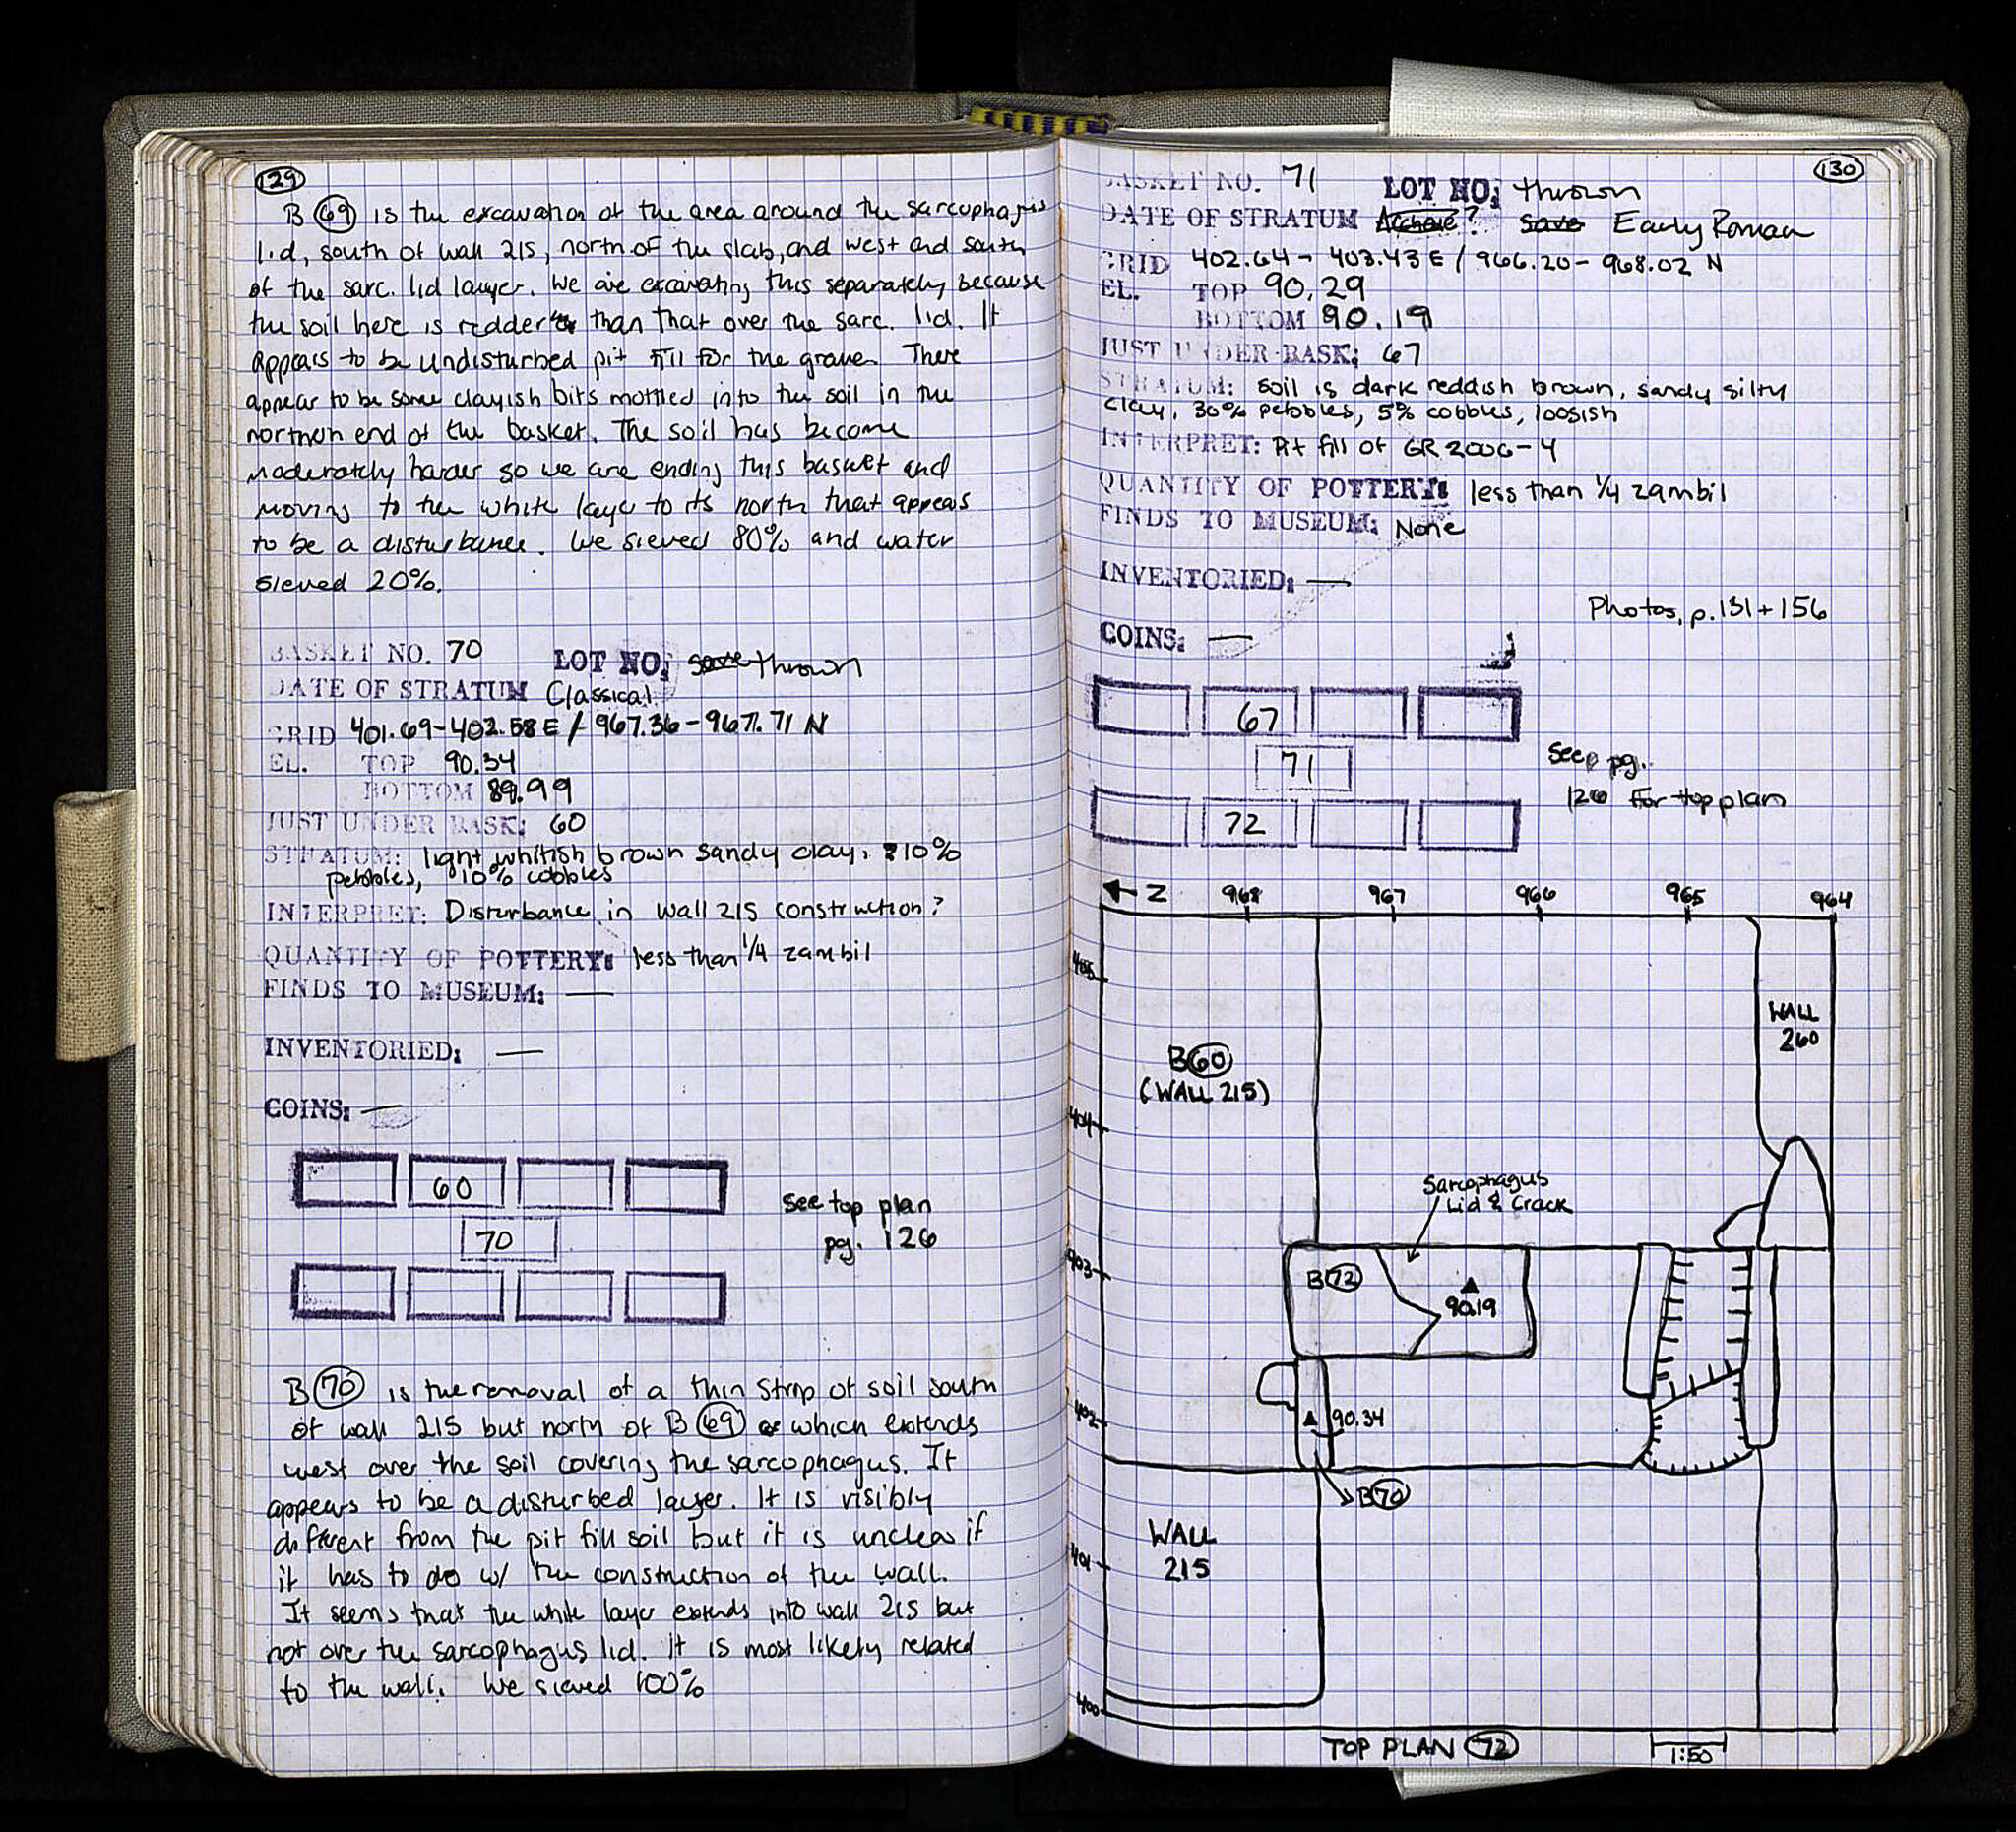 129
B 69 is the excavation of the area around the sarcophagus
lid, south of wall 215, north of the slab, and west and south
of the sarc. lid layer. We are excavating this separately because
the soil here is redder than that over the sarc. lid. It
appears to be undisturbed pit fill for the grave. There
appear to be some clayish bits mottled into the soil in the
northern end of the basket. The soil has become
moderately harder so we are ending this basket and
moving to the white layer to its north that appears
to be a disturbance. We sieved 80% and water
sieved 20%.
BASKET NO. 70 LOT NO: save thrown
DATE OF STRATUM Classical
GRID 401.69-402.58 E / 967.36-967.71 N
EL. TOP 90.34
BOTTOM 89.99
JUST UNDER BASK: 60
STRATUM: light whitish brown sandy clay, 10%
pebbles, 10% cobbles
INTERPRET: Disturbance in wall 215 construction?
QUANTITY OF POTTERY: less than 1/4 zambil
FINDS TO MUSEUM: —
INVENTORIED: —
COINS: —
60
70
see top plan
pg. 126
B 70 is the removal of a thin strip of soil south
of wall 215 but north of B 69 which extends
west over the soil covering the sarcophagus. It
appears to be a disturbed layer. It is visibly
different from the pit fill soil but it is unclear if
it has to do w/ the construction of the wall.
It seems that the white layer extends into wall 215 but
not over the sarcophagus lid. It is most likely related
to the wall. We sieved 100%
130
BASKET NO. 71 LOT NO: thrown
DATE OF STRATUM Archaic? save Early Roman
GRID 402.64 - 403.43 E / 966.20 - 968.02 N
EL. TOP 90.29
BOTTOM 90.19
JUST UNDER BASK: 67
STRATUM: soil is dark reddish brown, sandy silty
clay, 30% pebbles, 5% cobbles, loosish
INTERPRET: Pit fill of GR 2006-4
QUANTITY OF POTTERY: less than 1/4 zambil
FINDS TO MUSEUM: None
INVENTORIED: —
Photos, p.131 + 156
COINS: —
67
71
72
see pg.
126 for top plan
N 968 967 966 965 964
405
WALL
260
B 60
(WALL 215)
404
Sarcophagus
Lid & Crack
403
B 72
90.19
402
90.34
B 70
WALL
215
401
400
TOP PLAN 72
1:50